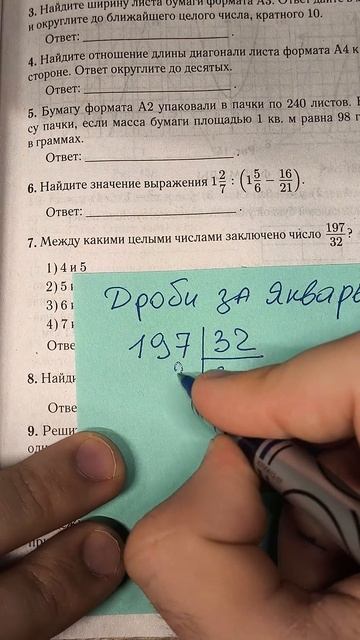 3. Найдите ширину листа бумаги формата А3. Ответ дайте в
и округлите до ближайшего целого числа, кратного 10.
Ответ: ____________.
4. Найдите отношение длины диагонали листа формата А4 к
стороне. Ответ округлите до десятых.
Ответ: ____________.
5. Бумагу формата А2 упаковали в пачки по 240 листов.
су пачки, если масса бумаги площадью 1 кв. м равна 98 г
в граммах.
Ответ: ____________.
6. Найдите значение выражения 1 2/7 : (1 5/6 − 16/21).
Ответ: ____________.
7. Между какими целыми числами заключено число 197/32?
1) 4 и 5
2) 5 и
3) 6 и
4) 7 и
Отве
Дроби за Январь
197 | 32
8. Найд
Отве
9. Реши